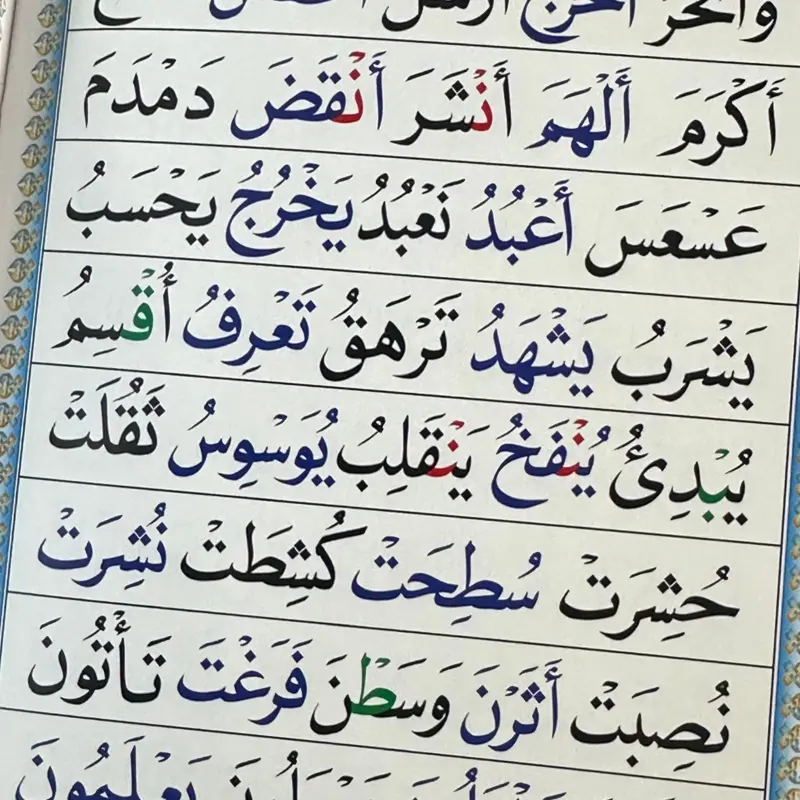 وَانْحَرْ
أَكْرَمَ أَلْهَمَ أَنْشَرَ أَنْقَضَ دَمْدَمَ
عَسْعَسَ أَعْبُدُ نَعْبُدُ يَخْرُجُ يَحْسَبُ
يَشْرَبُ يَشْهَدُ تَرْهَقُ تَعْرِفُ أُقْسِمُ
يُبْدِئُ يُنْفَخُ يَنْقَلِبُ يُوَسْوِسُ ثَقُلَتْ
حُشِرَتْ سُطِحَتْ كُشِطَتْ نُشِرَتْ
نُصِبَتْ أَثَرْنَ وَسَطْنَ فَرَغْتَ تَأْتُونَ